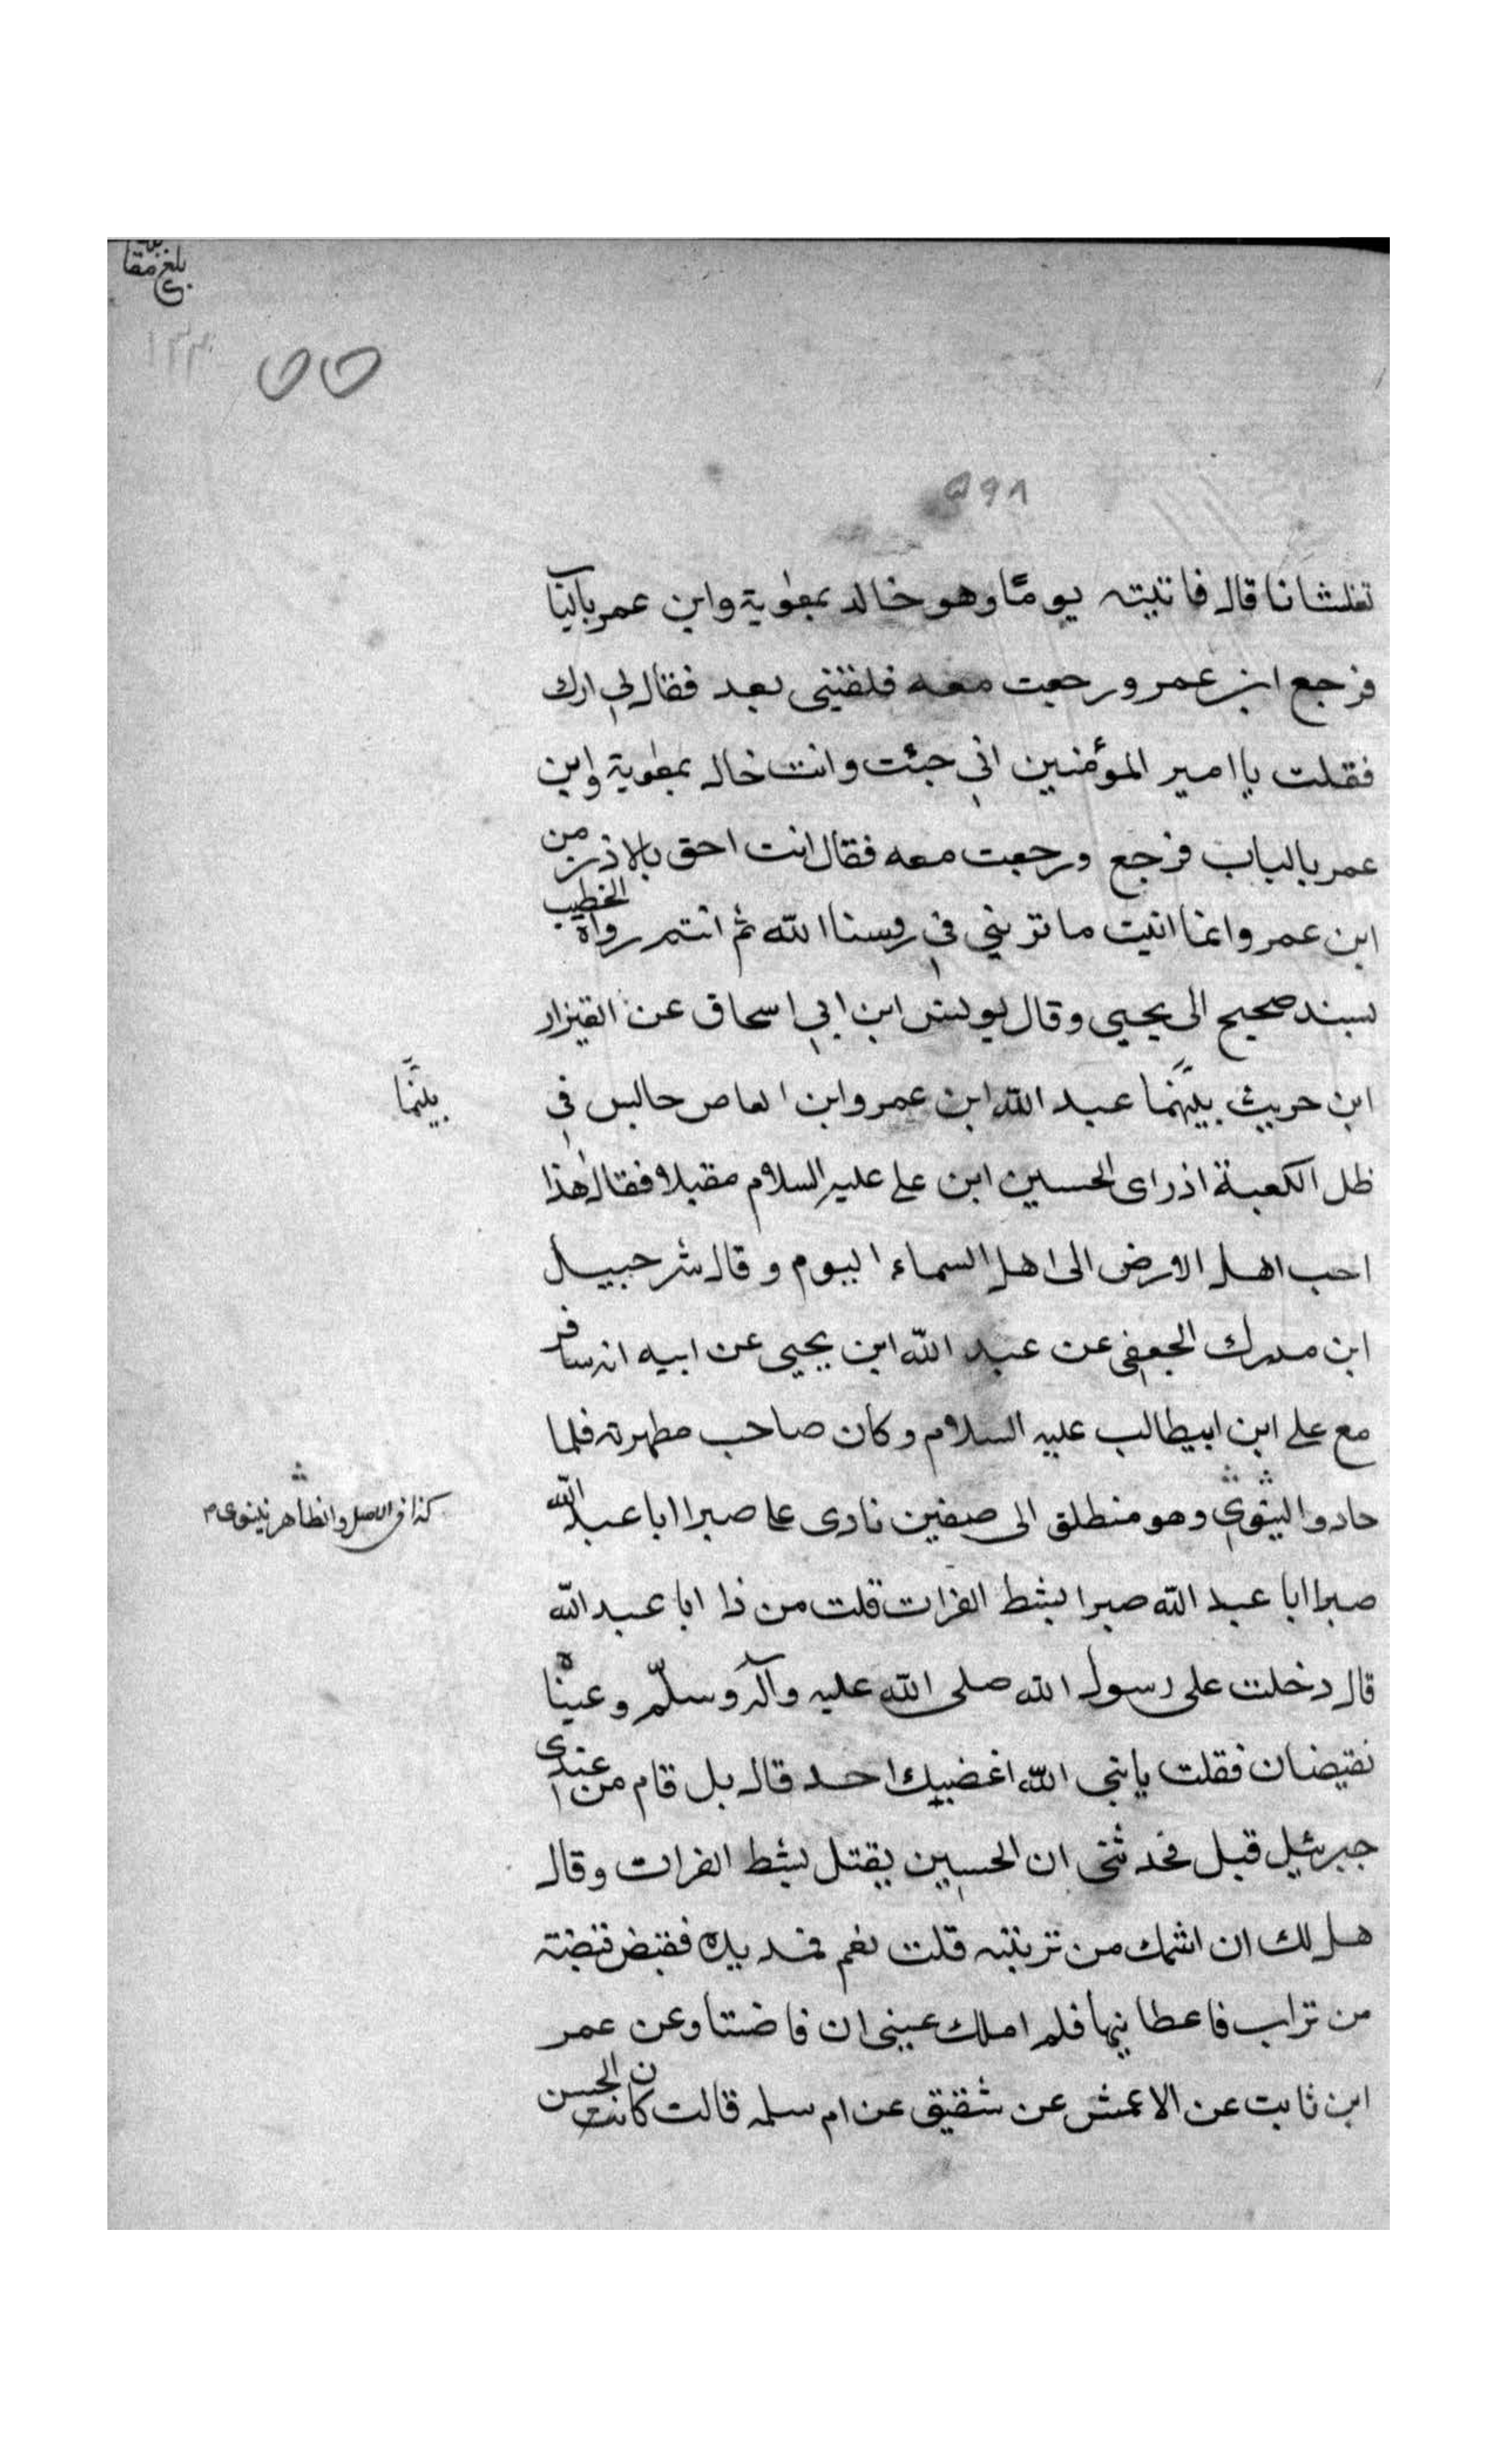 بلغ مقا
٥٥
٥٩٨
تغلشانا قال فاتيته يومًا وهو خالد بمعٰوية وابن عمر بالبا
فرجع ابن عمر ورجعت معه فلقيني بعد فقال لي ارك
فقلت يا امير المؤمنين اني جئت وانت خال بمعٰوية وابن
عمر بالباب فرجع ورجعت معه فقال انت احق بالاذن من
ابن عمر وانما انبت ما تريني في روسنا الله ثم انتم رواه الخطيب
بسند صحيح الى يحيى وقال يونس ابن ابي اسحاق عن القيزار
ابن حريث بينهما عبد الله ابن عمر وابن العاص جالس في
بينَّما
ظل الكعبة اذ راى الحسين ابن علي عليه السلام مقبلا فقال هٰذا
احب اهل الارض الى اهل السماء اليوم وقال شرحبيل
ابن مدرك الجعفي عن عبد الله ابن يحيى عن ابيه انه سافر
مع علي ابن ابيطالب عليه السلام وكان صاحب مطهرته فلما
حادوا وهو منطلق الى صفين نادى علي صبرا ابا عبد الله
كذا في الاصل والظاهر نينوى م
صبرا ابا عبد الله صبرا بشط الفرات قلت من ذا ابا عبد الله
قال دخلت على رسول الله صلى الله عليه وآله وسلّم وعيناه
نفيضان فقلت يا نبي الله اغضبك احد قال بل قام من عندي
جبرئيل قبل فحدثني ان الحسين يقتل بشط الفرات وقال
هل لك ان اشمك من تربته قلت نعم فمد يده فقبض قبضة
من تراب فاعطانيها فلم املك عيني ان فاضتا وعن عمر
ابن ثابت عن الاعمش عن شقيق عن ام سلمه قالت كان الحسن